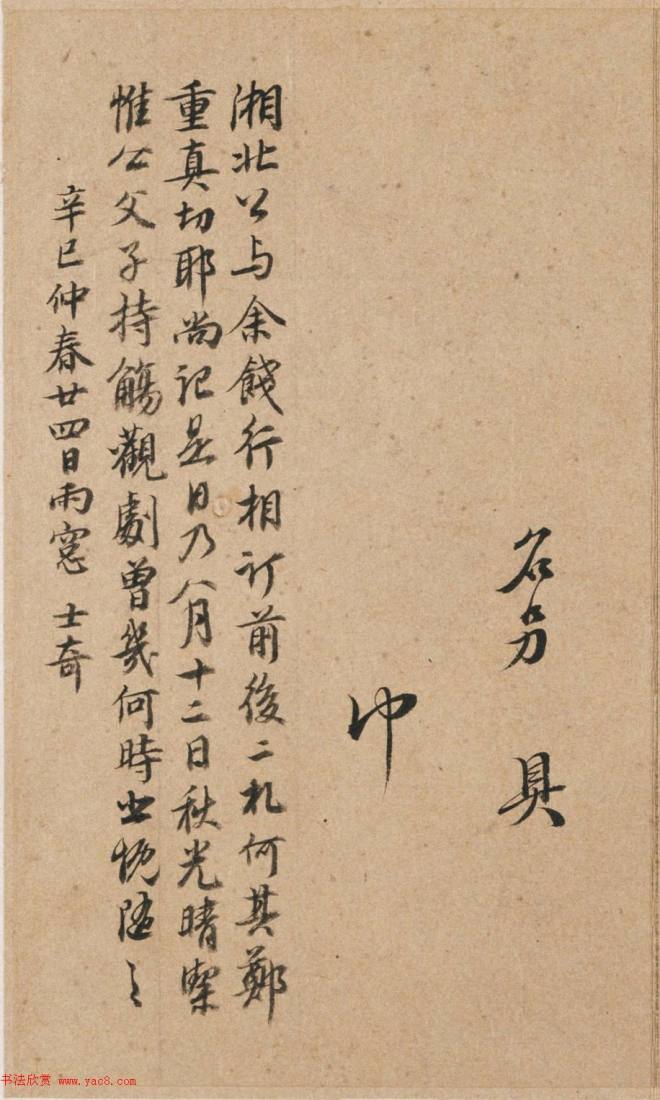 名另 具
冲
湘北公与余餞行相订前後二札何其鄭
重真切耶尚記是日乃八月十二日秋光晴
惟公父子持觴觀劇曾幾何時
辛巳仲春廿四日雨窓 士奇
书法欣赏 www.yac8.com